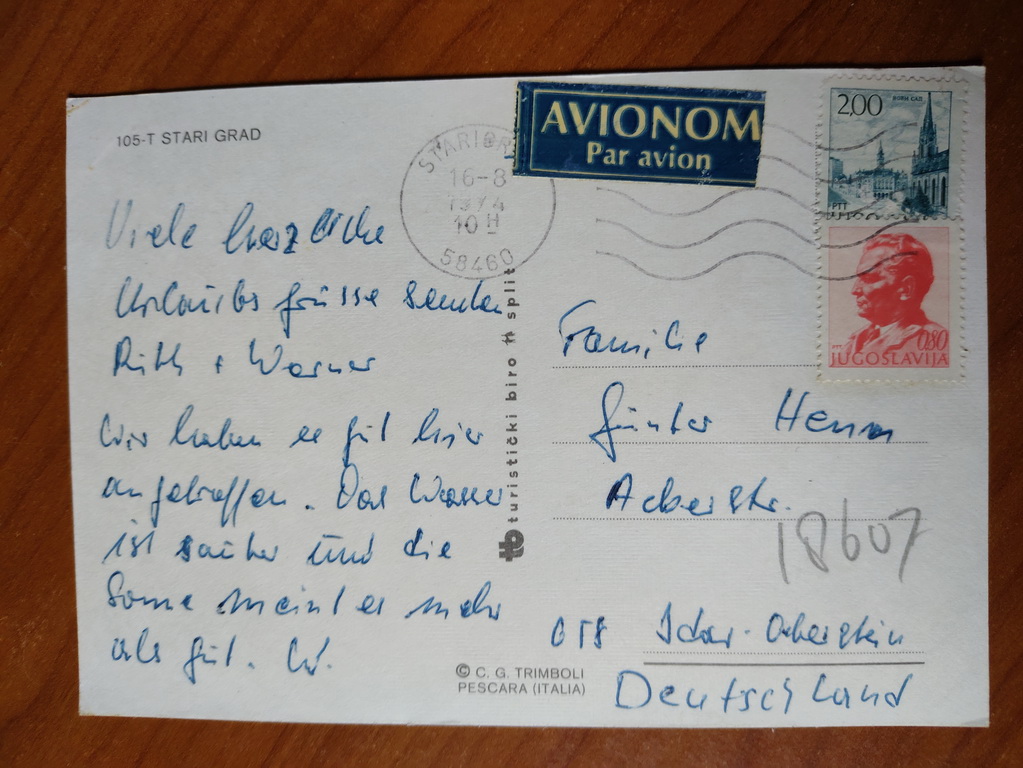 105-T STARI GRAD
AVIONOM
Par avion
2,00
PTT
0,80
JUGOSLAVIJA
16-8
1974
10 H
58460
Viele herzliche
Urlaubsgrüsse senden
Ruth + Werner
Wir haben es gut hier
angetroffen. Das Wasser
ist sauber und die
Sonne meint es mehr
als gut. W.
turistički biro split
Familie
Günter Henn
Ackerstr.
18607
658 Idar-Oberstein
Deutschland
© C. G. TRIMBOLI
PESCARA (ITALIA)